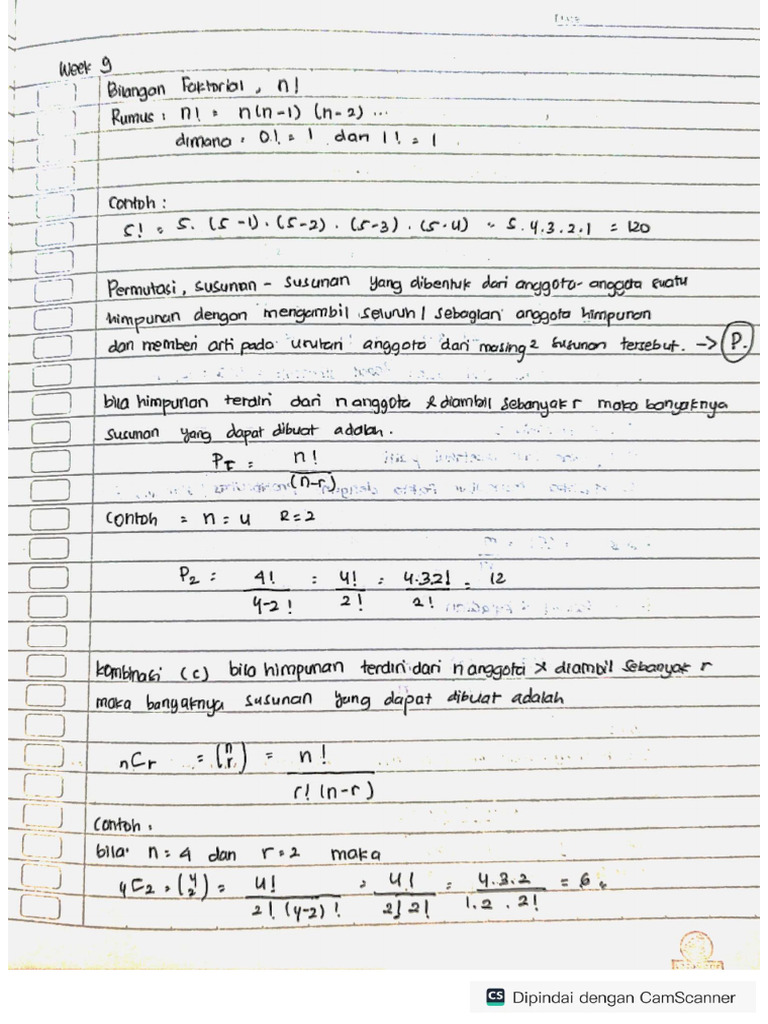 Week 9
Bilangan Faktorial, n!
Rumus : n! = n(n-1) (n-2) ...
dimana : 0! = 1 dan 1! = 1
Contoh :
5! = 5. (5-1). (5-2). (5-3). (5-4) = 5.4.3.2.1 = 120
Permutasi, susunan - susunan yang dibentuk dari anggota-anggota suatu
himpunan dengan mengambil seluruh / sebagian anggota himpunan
dan memberi arti pada urutan anggota dari masing2 susunan tersebut. -> P.
bila himpunan terdiri dari n anggota & diambil sebanyak r maka banyaknya
susunan yang dapat dibuat adalah.
Pr = n! / (n-r)
Contoh = n = 4 R = 2
P2 = 4! / 4-2! = 4! / 2! = 4.3.2! / 2! = 12
kombinasi (c) bila himpunan terdiri dari n anggota & diambil sebanyak r
maka banyaknya susunan yang dapat dibuat adalah
nCr = (n r) = n! / r! (n-r)
Contoh :
bila n = 4 dan r = 2 maka
4C2 = (4 2) = 4! / 2! (4-2)! = 4! / 2! 2! = 4.3.2 / 1.2.2! = 6
CS Dipindai dengan CamScanner